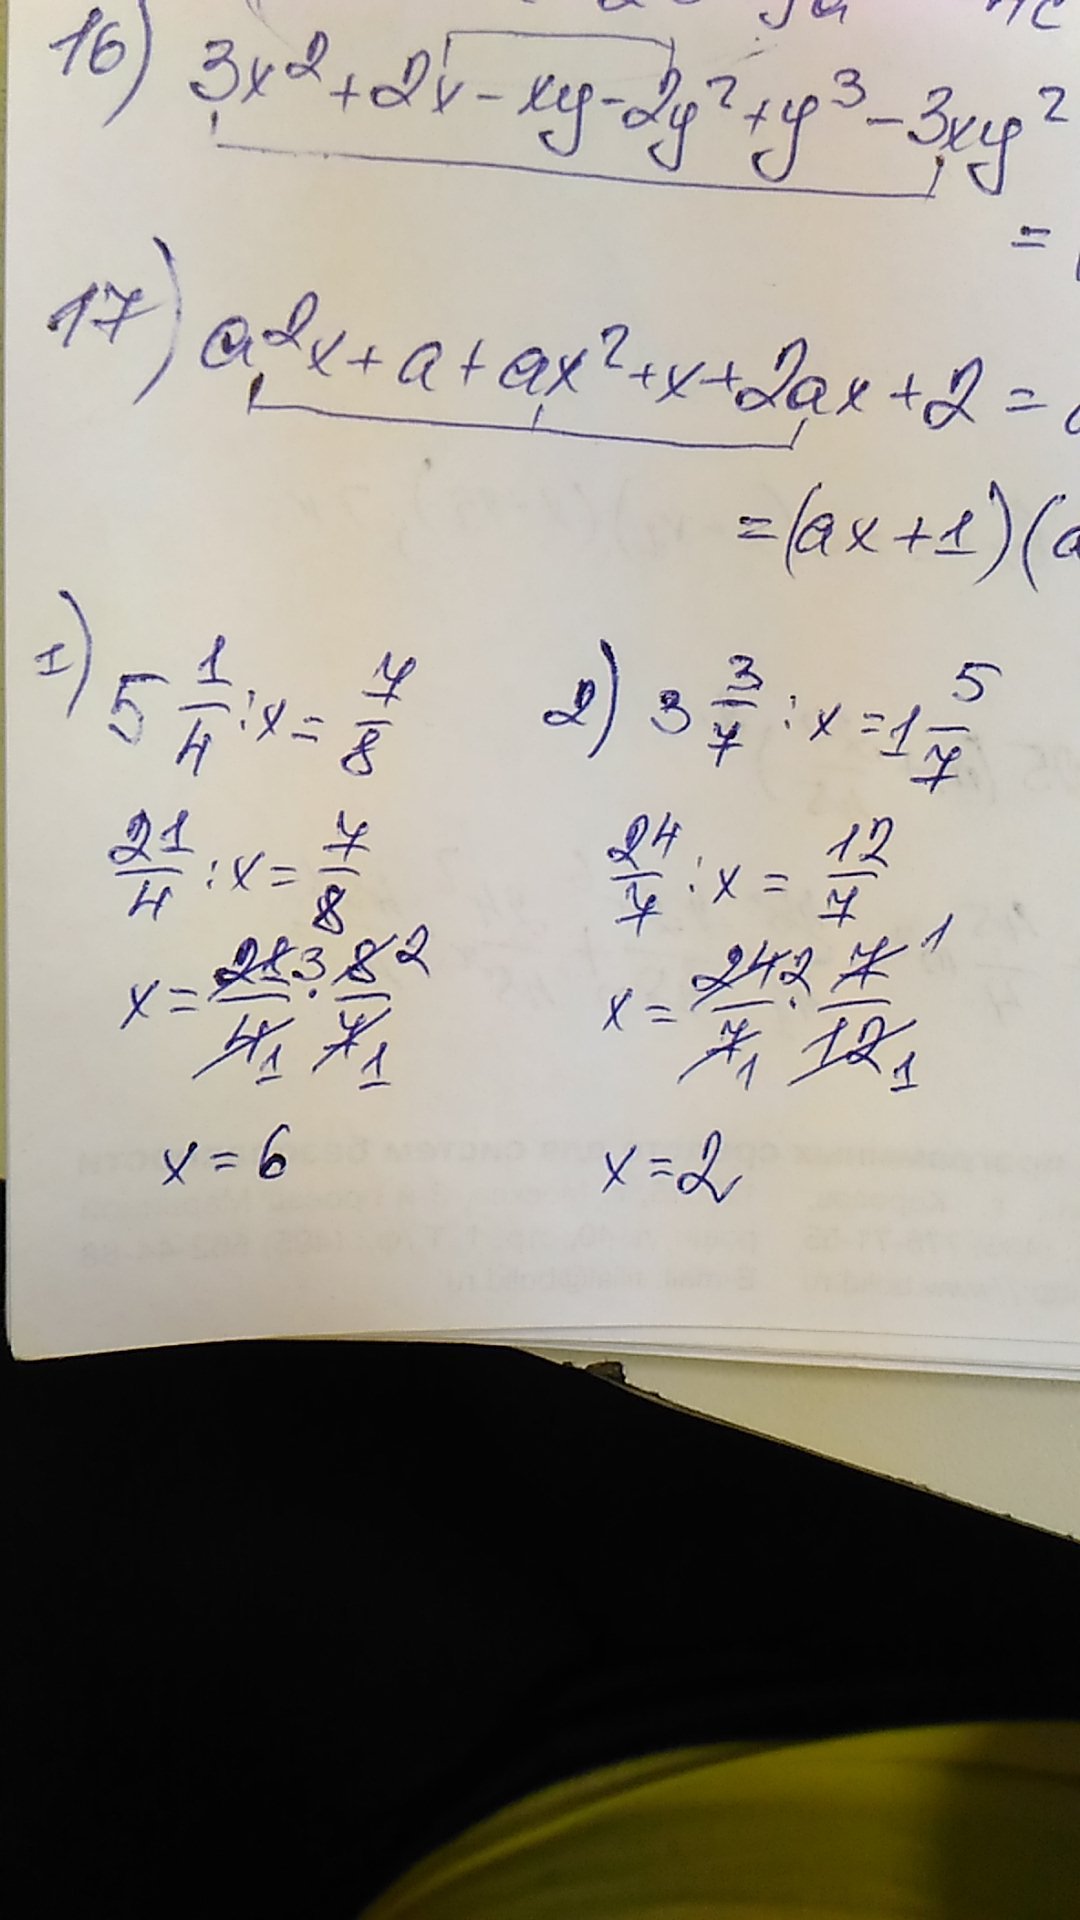 16) 3x² + 2x - xy - 2y² + y³ - 3xy²
=
17) a²x + a + ax² + x + 2ax + 2 =
= (ax + 1)(a
1) 5 1/4 : x = 7/8
21/4 : x = 7/8
x = 21 3/4 1 · 8 2/7 1
x = 6
2) 3 3/7 : x = 1 5/7
24/7 : x = 12/7
x = 24 2/7 1 · 7 1/12 1
x = 2